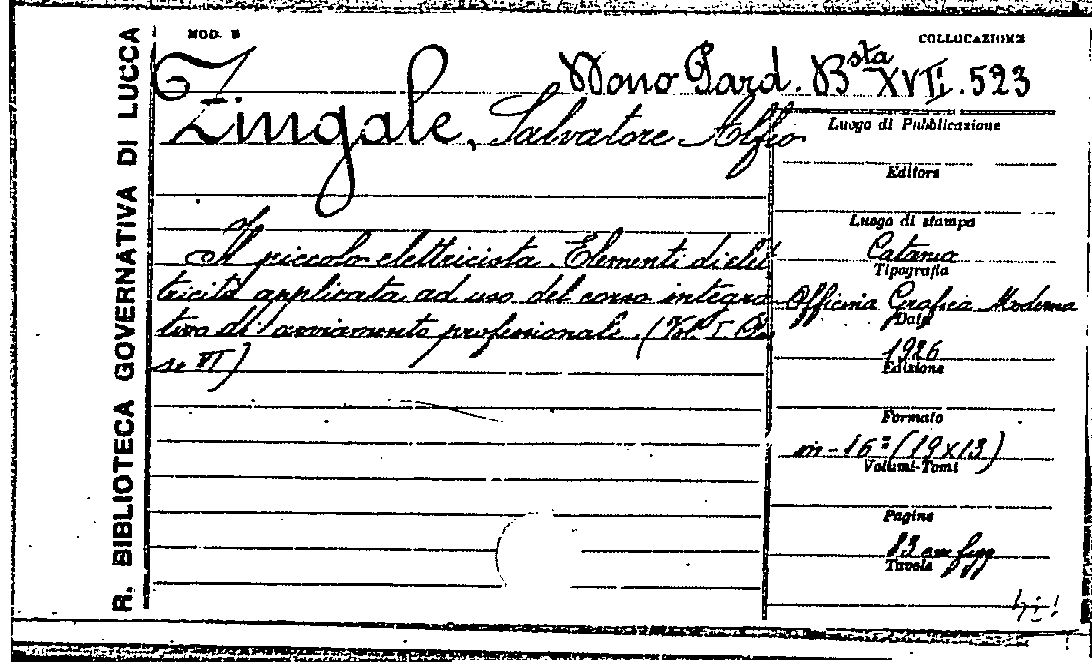 R. BIBLIOTECA GOVERNATIVA DI LUCCA
MOD. B
COLLOCAZIONE
Mono Gard. Bsta XVII. 523
Zingale, Salvatore Alfio
Luogo di Pubblicazione
Editore
Luogo di stampa
Il piccolo elettricista. Elementi di elet
Catania
Tipografia
tricità applicata ad uso del corso integra
Officina Grafica Moderna
Data
tivo di avviamento professionale. (Vol. I. Clas
1926
se VI)
Edizione
Formato
in-16° (19x13)
Volumi-Tomi
Pagine
83 con figg
Tavole